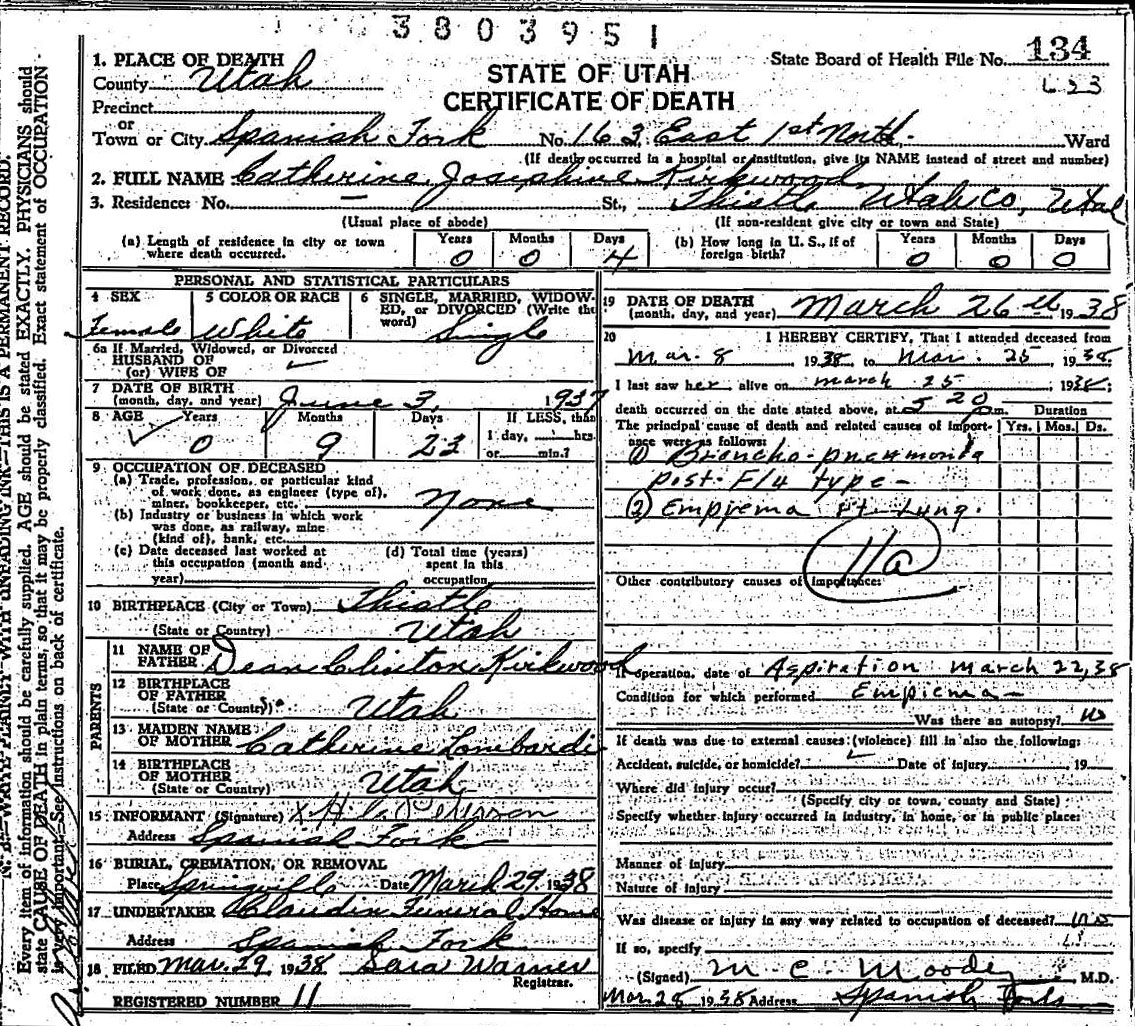 3803951
1. PLACE OF DEATH
County Utah
STATE OF UTAH
CERTIFICATE OF DEATH
State Board of Health File No. 134
623
Precinct
or
Town or City Spanish Fork No. 163 East 1st North. Ward
(If death occurred in a hospital or institution, give its NAME instead of street and number)
2. FULL NAME Catherine Josephine Kirkwood
3. Residence: No. — St., Thistle Utah Co, Utah
(Usual place of abode) (If non-resident give city or town and State)
(a) Length of residence in city or town where death occurred. Years 0 Months 0 Days 4
(b) How long in U. S., if of foreign birth? Years 0 Months 0 Days 0
PERSONAL AND STATISTICAL PARTICULARS
4 SEX Female
5 COLOR OR RACE White
6 SINGLE, MARRIED, WIDOWED, or DIVORCED (Write the word) Single
6a If Married, Widowed, or Divorced
HUSBAND OF
(or) WIFE OF
7 DATE OF BIRTH
(month, day, and year) June 3, 1937
8 AGE Years 0 Months 9 Days 23 If LESS, than 1 day, hrs. or min.?
9 OCCUPATION OF DECEASED
(a) Trade, profession, or particular kind
of work done, as engineer (type of),
miner, bookkeeper, etc. None
(b) Industry or business in which work
was done, as railway, mine
(kind of), bank, etc.
(c) Date deceased last worked at
this occupation (month and
year)
(d) Total time (years)
spent in this
occupation
10 BIRTHPLACE (City or Town) Thistle
(State or Country) Utah
PARENTS
11 NAME OF
FATHER Dean Clinton Kirkwood
12 BIRTHPLACE
OF FATHER
(State or Country) Utah
13 MAIDEN NAME
OF MOTHER Catherine Lombardi
14 BIRTHPLACE
OF MOTHER
(State or Country) Utah
15 INFORMANT (Signature) x H. C.
Address Spanish Fork
16 BURIAL, CREMATION, OR REMOVAL
Place Springville Date March 29 1938
17 UNDERTAKER Claudin Funeral Home
Address Spanish Fork
18 FILED Mar. 29 1938 Sara Warner
Registrar.
REGISTERED NUMBER 11
19 DATE OF DEATH
(month, day, and year) March 26th 1938
20 I HEREBY CERTIFY, That I attended deceased from
Mar. 8 1938 to Mar. 25 1938
I last saw her alive on march 25 1938;
death occurred on the date stated above, at 5 20 p.m. Duration
The principal cause of death and related causes of importance were as follows: Yrs. Mos. Ds.
(1) Broncho-pneumonia
post-Flu type-
(2) Empyema rt. Lung.
11a
Other contributory causes of importance:
If operation, date of Aspiration march 22, 38
Condition for which performed Empiema
Was there an autopsy? no
If death was due to external causes (violence) fill in also the following:
Accident, suicide, or homicide? Date of injury 19
Where did injury occur?
(Specify city or town, county and State)
Specify whether injury occurred in industry, in home, or in public place:
Manner of injury
Nature of injury
Was disease or injury in any way related to occupation of deceased? no
If so, specify
(Signed) M. C. Moody M.D.
Mar. 28 1938 Address Spanish Fork
N. B.—WRITE PLAINLY WITH UNFADING INK—THIS IS A PERMANENT RECORD.
Every item of information should be carefully supplied. AGE should be stated EXACTLY. PHYSICIANS should
state CAUSE OF DEATH in plain terms, so that it may be properly classified. Exact statement of OCCUPATION
is very important. See instructions on back of certificate.